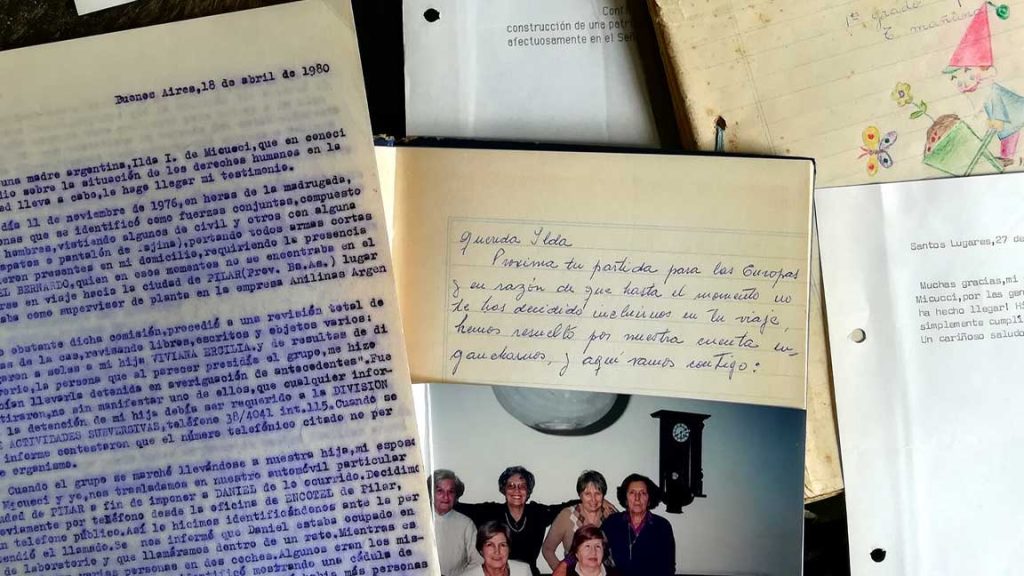 Buenos Aires,18 de abril de 1980
una madre argentina,Ilda I. de Micucci,que en conoci
dio sobre la situación de los derechos humanos en la
ed lleva a cabo,le hago llegar mi testimonio.
día 11 de noviembre de 1976,en horas de la madrugada,
onas que se identificó como fuerzas conjuntas,compuesto
hombres,vistiendo algunos de civil y otros con alguna
apatos o pantalón de fajina),portando todos armas cortas
ieron presentes en mi domicilio,requiriendo la presencia
EL BERNARDO,quien en esos momentos no se encontraba en el
rse en viaje hacia la ciudad de PILAR(Prov. Bs.As.) lugar
aba como supervisor de planta en la empresa Anilinas Argen
obstante dicha comisión,procedió a una revisión total de
as de la cas,revisando libros,escritos y objetos varios;
garon a solas a mi hija VIVIANA ERCILIA,y de resultas de di
orio,la persona que al parecer presidía el grupo,me hizo
bían llevarla detenida en averiguación de antecedentes".Fue
tiraron,no sin manifestar uno de ellos,que cualquier infor-
la detención de mi hija debía ser requerido a la DIVISION
E ACTIVIDADES SUBVERSIVAS,teléfono 38/4041 int.115.Cuando se
informe contestaron que el número telefónico citado no per
e organismo.
Cuando el grupo se marchó llevándose a nuestra hija,mi espos
Micucci y yo,nos trasladamos en nuestro automóvil particular
dad de PILAR a fin de imponer a DANIEL de lo ocurrido.Decidimo
viamente por teléfono desde la oficina de ENCOTEL de Pilar,
n teléfono público.Así lo hicimos identificándonos ante la per
endió el llamado.Se nos informó que Daniel estaba ocupado en
de laboratorio y que llamáramos dentro de un rato.Mientras es
varias personas en dos coches.Algunos eran los mis-
identificó mostrando una cédula de
había más personas
Conf
construcción de una patr
afectuosamente en el Señ
1º grado
T. mañana
Querida Ilda
Próxima tu partida para las Europas
y en razón de que hasta el momento no
te has decidido incluirnos en tu viaje,
hemos resuelto por nuestra cuenta en-
gancharnos, y aquí vamos contigo:
Santos Lugares,27 de
Muchas gracias,mi
Micucci,por las gen
ha hecho llegar! H
simplemente cumpli
Un cariñoso salud